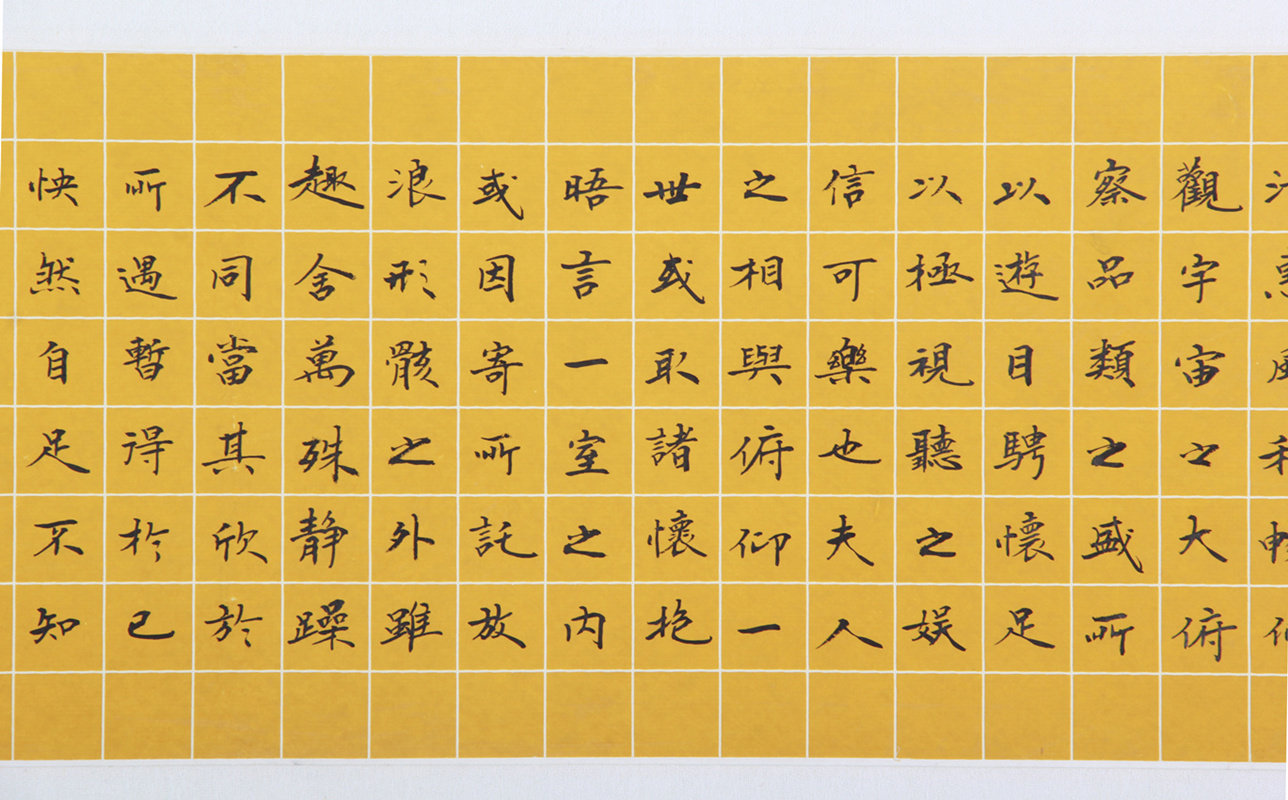 觀宇宙之大俯
察品類之盛所
以遊目騁懷足
以極視聽之娛
信可樂也夫人
之相與俯仰一
世或取諸懷抱
晤言一室之内
或因寄所託放
浪形骸之外雖
趣舍萬殊静躁
不同當其欣於
所遇暫得於己
快然自足不知